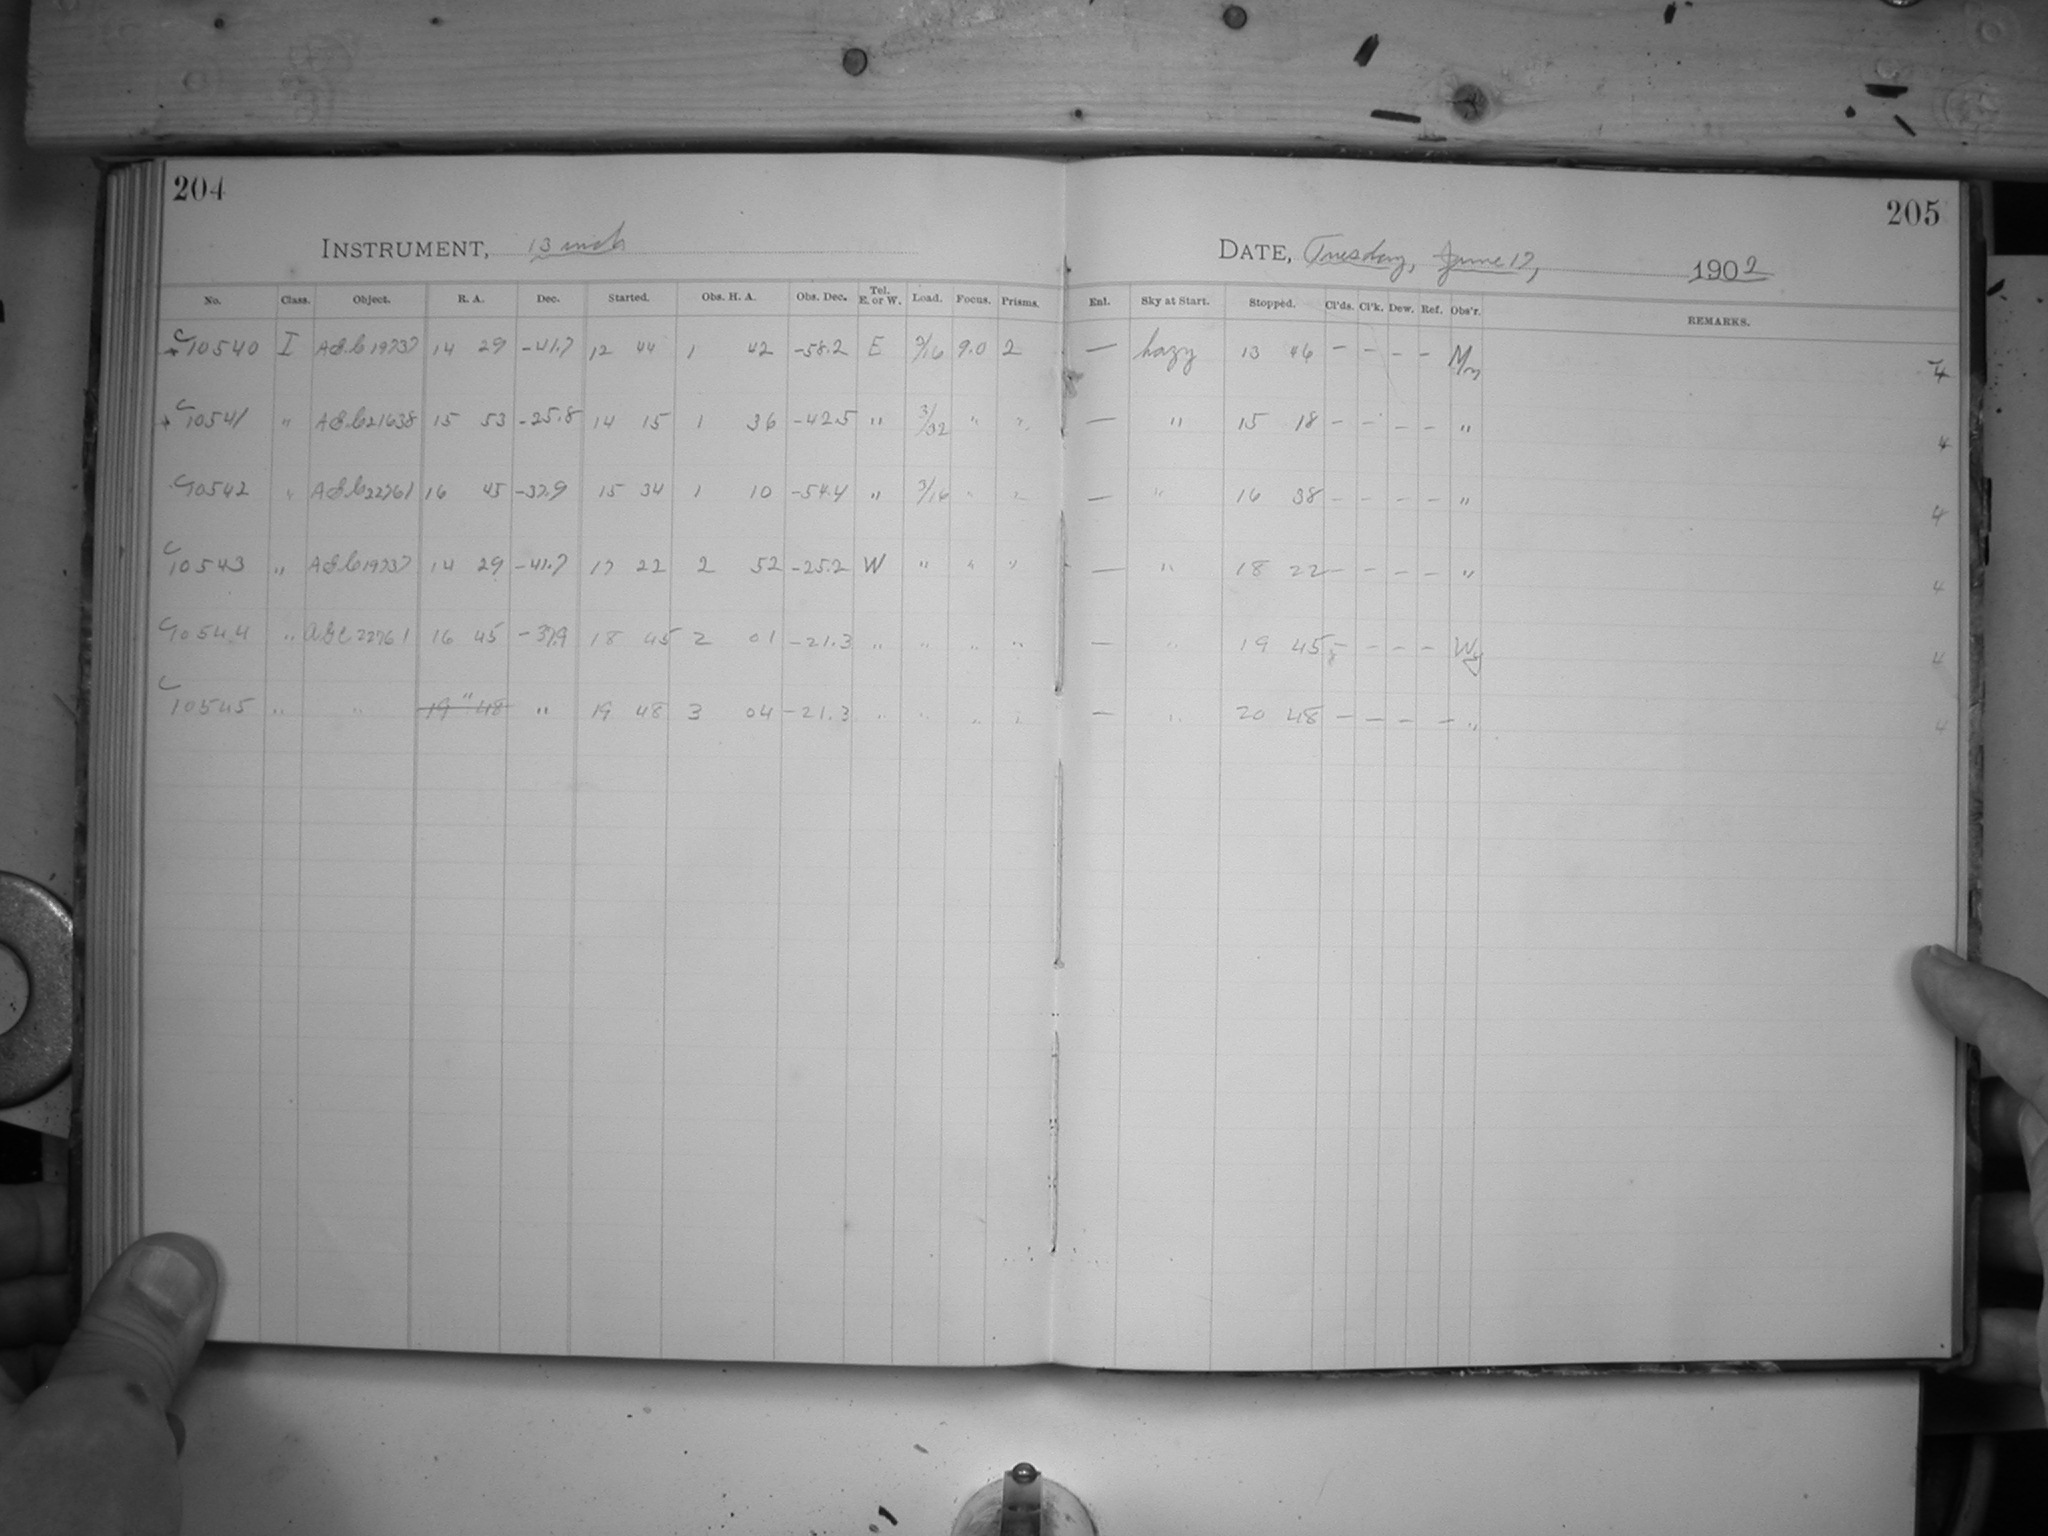 204
205
INSTRUMENT, 13 inch
DATE, Tuesday, June 17, 1902
No. Class. Object. R. A. Dec. Started. Obs. H. A. Obs. Dec. Tel. E. or W. Load. Focus. Prisms. Enl. Sky at Start. Stopped. Cl'ds. Cl'k. Dew. Ref. Obs'r. REMARKS.
C10540 I AGC 19737 14 29 -41.7 12 44 1 42 -58.2 E 3/16 9.0 2 — hazy 13 46 - - - - My 4
C10541 " AGC 21638 15 53 -25.8 14 15 1 36 -42.5 " 3/32 " " — " 15 18 - - - - " 4
C10542 " AGC 22761 16 45 -37.9 15 34 1 10 -54.4 " 3/16 " " — " 16 38 - - - - " 4
C10543 " AGC 19737 14 29 -41.7 17 22 2 52 -25.2 W " " " — " 18 22 - - - - " 4
C10544 " AGC 22761 16 45 -37.9 18 45 2 01 -21.3 " " " " — " 19 45 - - - - Wy 4
C10545 " " 19 48 " " 19 48 3 04 -21.3 " " " " — " 20 48 - - - - " 4